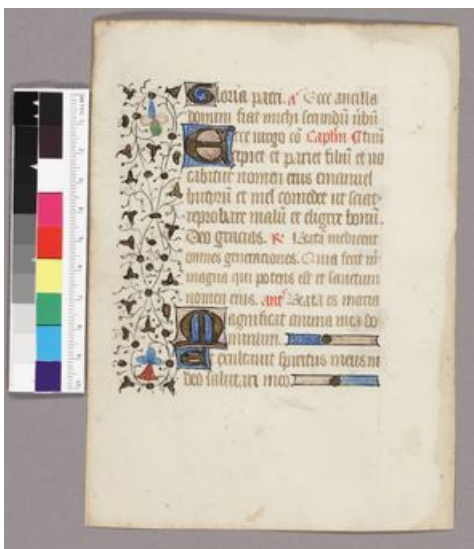 Gloria patri. a' Ecce ancilla
domini fiat michi secundũ ũbũ
Ecce virgo cõ Caplm
cipiet et pariet filiũ et uo
cabitur nomen eius emanuel
butirũ et mel comedet ut sciat
reprobare malũ et eligere bonũ.
Deo gracias. R' Beata me dicent
omnes generaciones. Quia fecit m
magna qui potens est et sanctum
nomen eius. ant' Beata es maria
Magnificat anima mea do
minum.
Et exultauit spiritus meus in
deo salutari meo